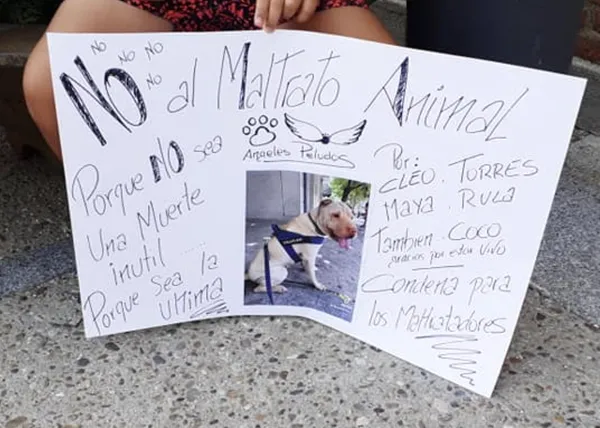 No No No
No
No al Maltrato Animal
Angeles Peludos
Porque NO sea
Una Muerte
inutil .....
Porque Sea la
ultima
Por:
CLEO. TORRES
MAYA. RULA
Tambien. COCO
gracias por estar vivo
Condena para
los Maltratadores